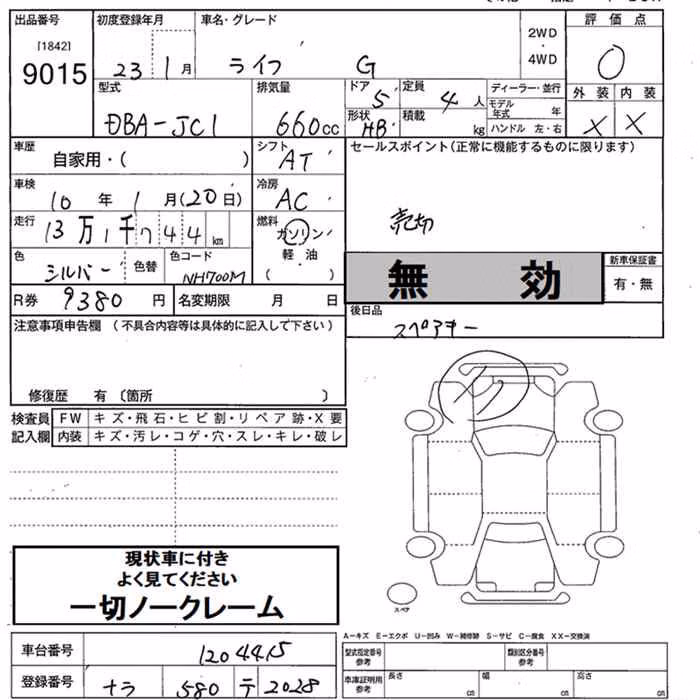 出品番号 初度登録年月 車名・グレード 2WD ・ 4WD 評価点
[1842]
9015 23 1月 ライフ G 0
型式 排気量 ドア 5 定員 4人 ディーラー・並行 外装 内装
DBA-JC1 660cc 形状 HB 積載 kg モデル年式 年 ハンドル 左・右 X X
車歴 自家用・( ) シフト AT セールスポイント(正常に機能するものに限ります)
車検 10年 1月(20日) 冷房 AC
走行 13万1千744km 燃料 ガソリン 軽油 ( ) 売切
色 シルバー 色替 色コード NH700M 無効 新車保証書 有・無
R券 9380円 名変期限 月 日
後日品 スペアキー
注意事項申告欄 (不具合内容等は具体的に記入して下さい)
修復歴 有〔箇所 〕
検査員 FW キズ・飛石・ヒビ割・リペア跡・X要
記入欄 内装 キズ・汚レ・コゲ・穴・スレ・キレ・破レ
現状車に付き
よく見てください
一切ノークレーム
スペア
A-キズ E-エクボ U-凹み W-補修跡 S-サビ C-腐食 XX-交換済
車台番号 1204415 型式指定番号 参考 類別区分番号 参考
登録番号 ナラ 580 テ 2028 車庫証明用 参考 長さ cm 幅 cm 高さ cm